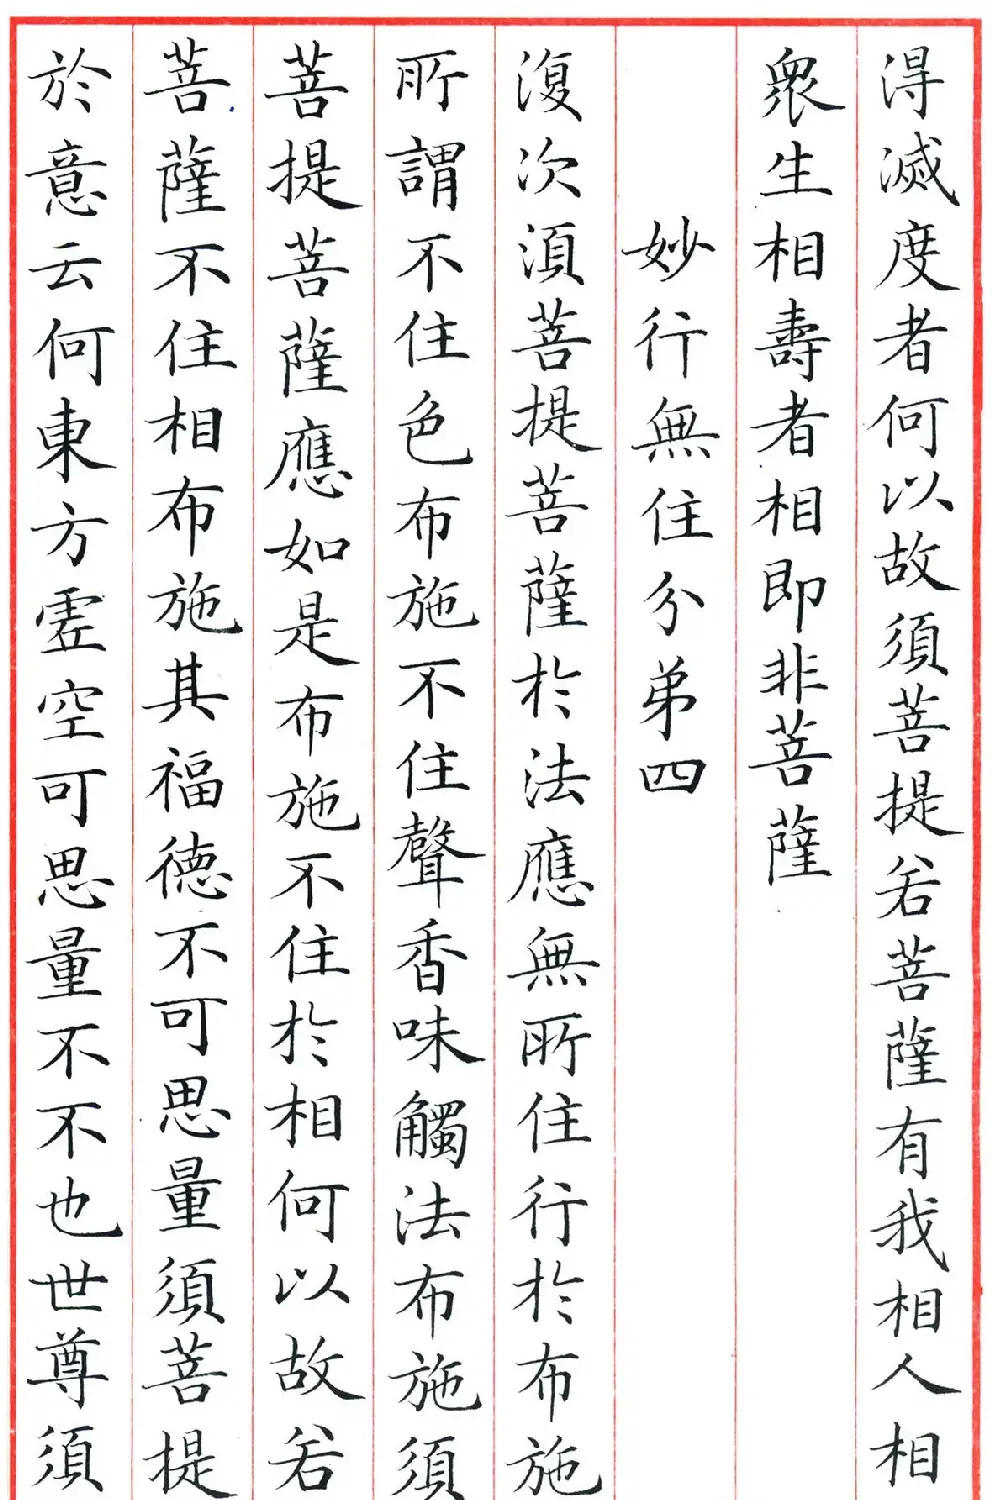 得滅度者何以故須菩提若菩薩有我相人相
衆生相壽者相即非菩薩
妙行無住分第四
復次須菩提菩薩於法應無所住行於布施
所謂不住色布施不住聲香味觸法布施須
菩提菩薩應如是布施不住於相何以故若
菩薩不住相布施其福德不可思量須菩提
於意云何東方虛空可思量不不也世尊須